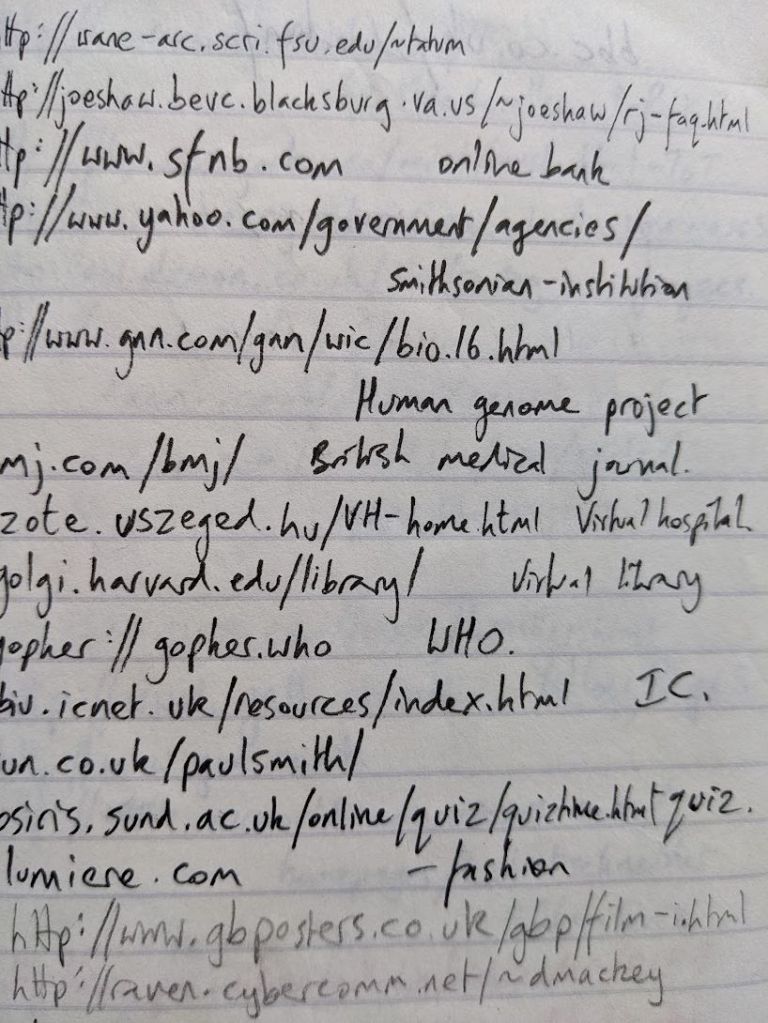 ttp://wane-arc.scri.fsu.edu/~tatum
ttp://joeshaw.bevc.blacksburg.va.us/~joeshaw/rj-faq.html
ttp://www.sfnb.com online bank
tp://www.yahoo.com/government/agencies/
smithsonian-institution
p://www.gnn.com/gnn/wic/bio.16.html
Human genome project
mj.com/bmj/ British medical journal.
zote.uszeged.hu/VH-home.html Virtual hospital
golgi.harvard.edu/library/ Virtual library
gopher://gopher.who WHO.
biu.icnet.uk/resources/index.html IC.
un.co.uk/paulsmith/
osiris.sund.ac.uk/online/quiz/quiztime.html quiz.
lumiere.com - fashion
http://www.gbposters.co.uk/gbp/film-i.html
http://raven.cybercomm.net/~dmackey